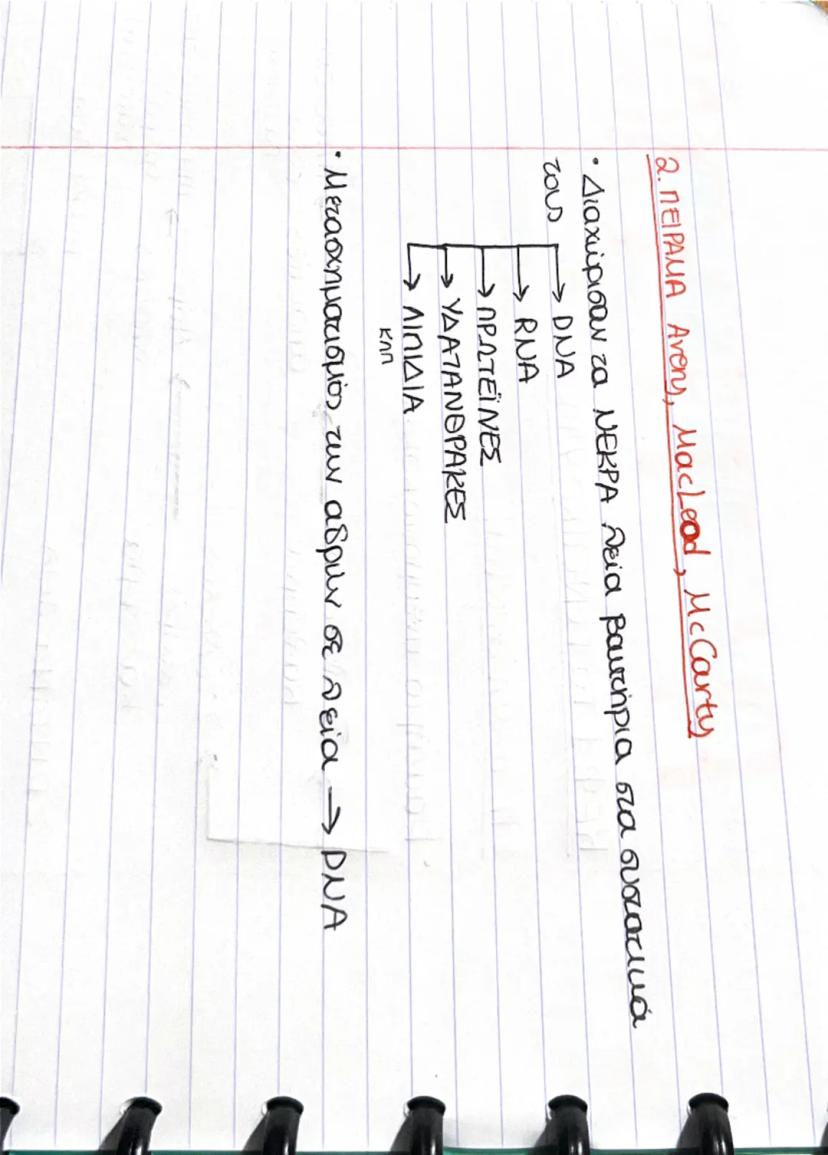 2. ΠΕΙΡΑΜΑ Avery, MacLeod, McCarty
• Διαχώρισαν τα ΝΕΚΡΑ λεία βακτήρια στα συστατικά
τους
→ DNA
→ RNA
→ ΠΡΩΤΕΪΝΕΣ
→ ΥΔΑΤΑΝΘΡΑΚΕΣ
→ ΛΙΠΙΔΙΑ
κλπ
• Μετασχηματισμός των αδρών σε λεία → DNA